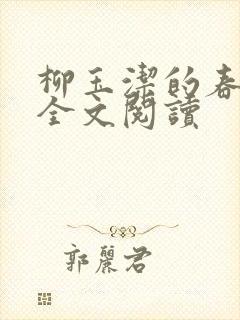 柳玉潔的春
全文閱讀
郭麗君